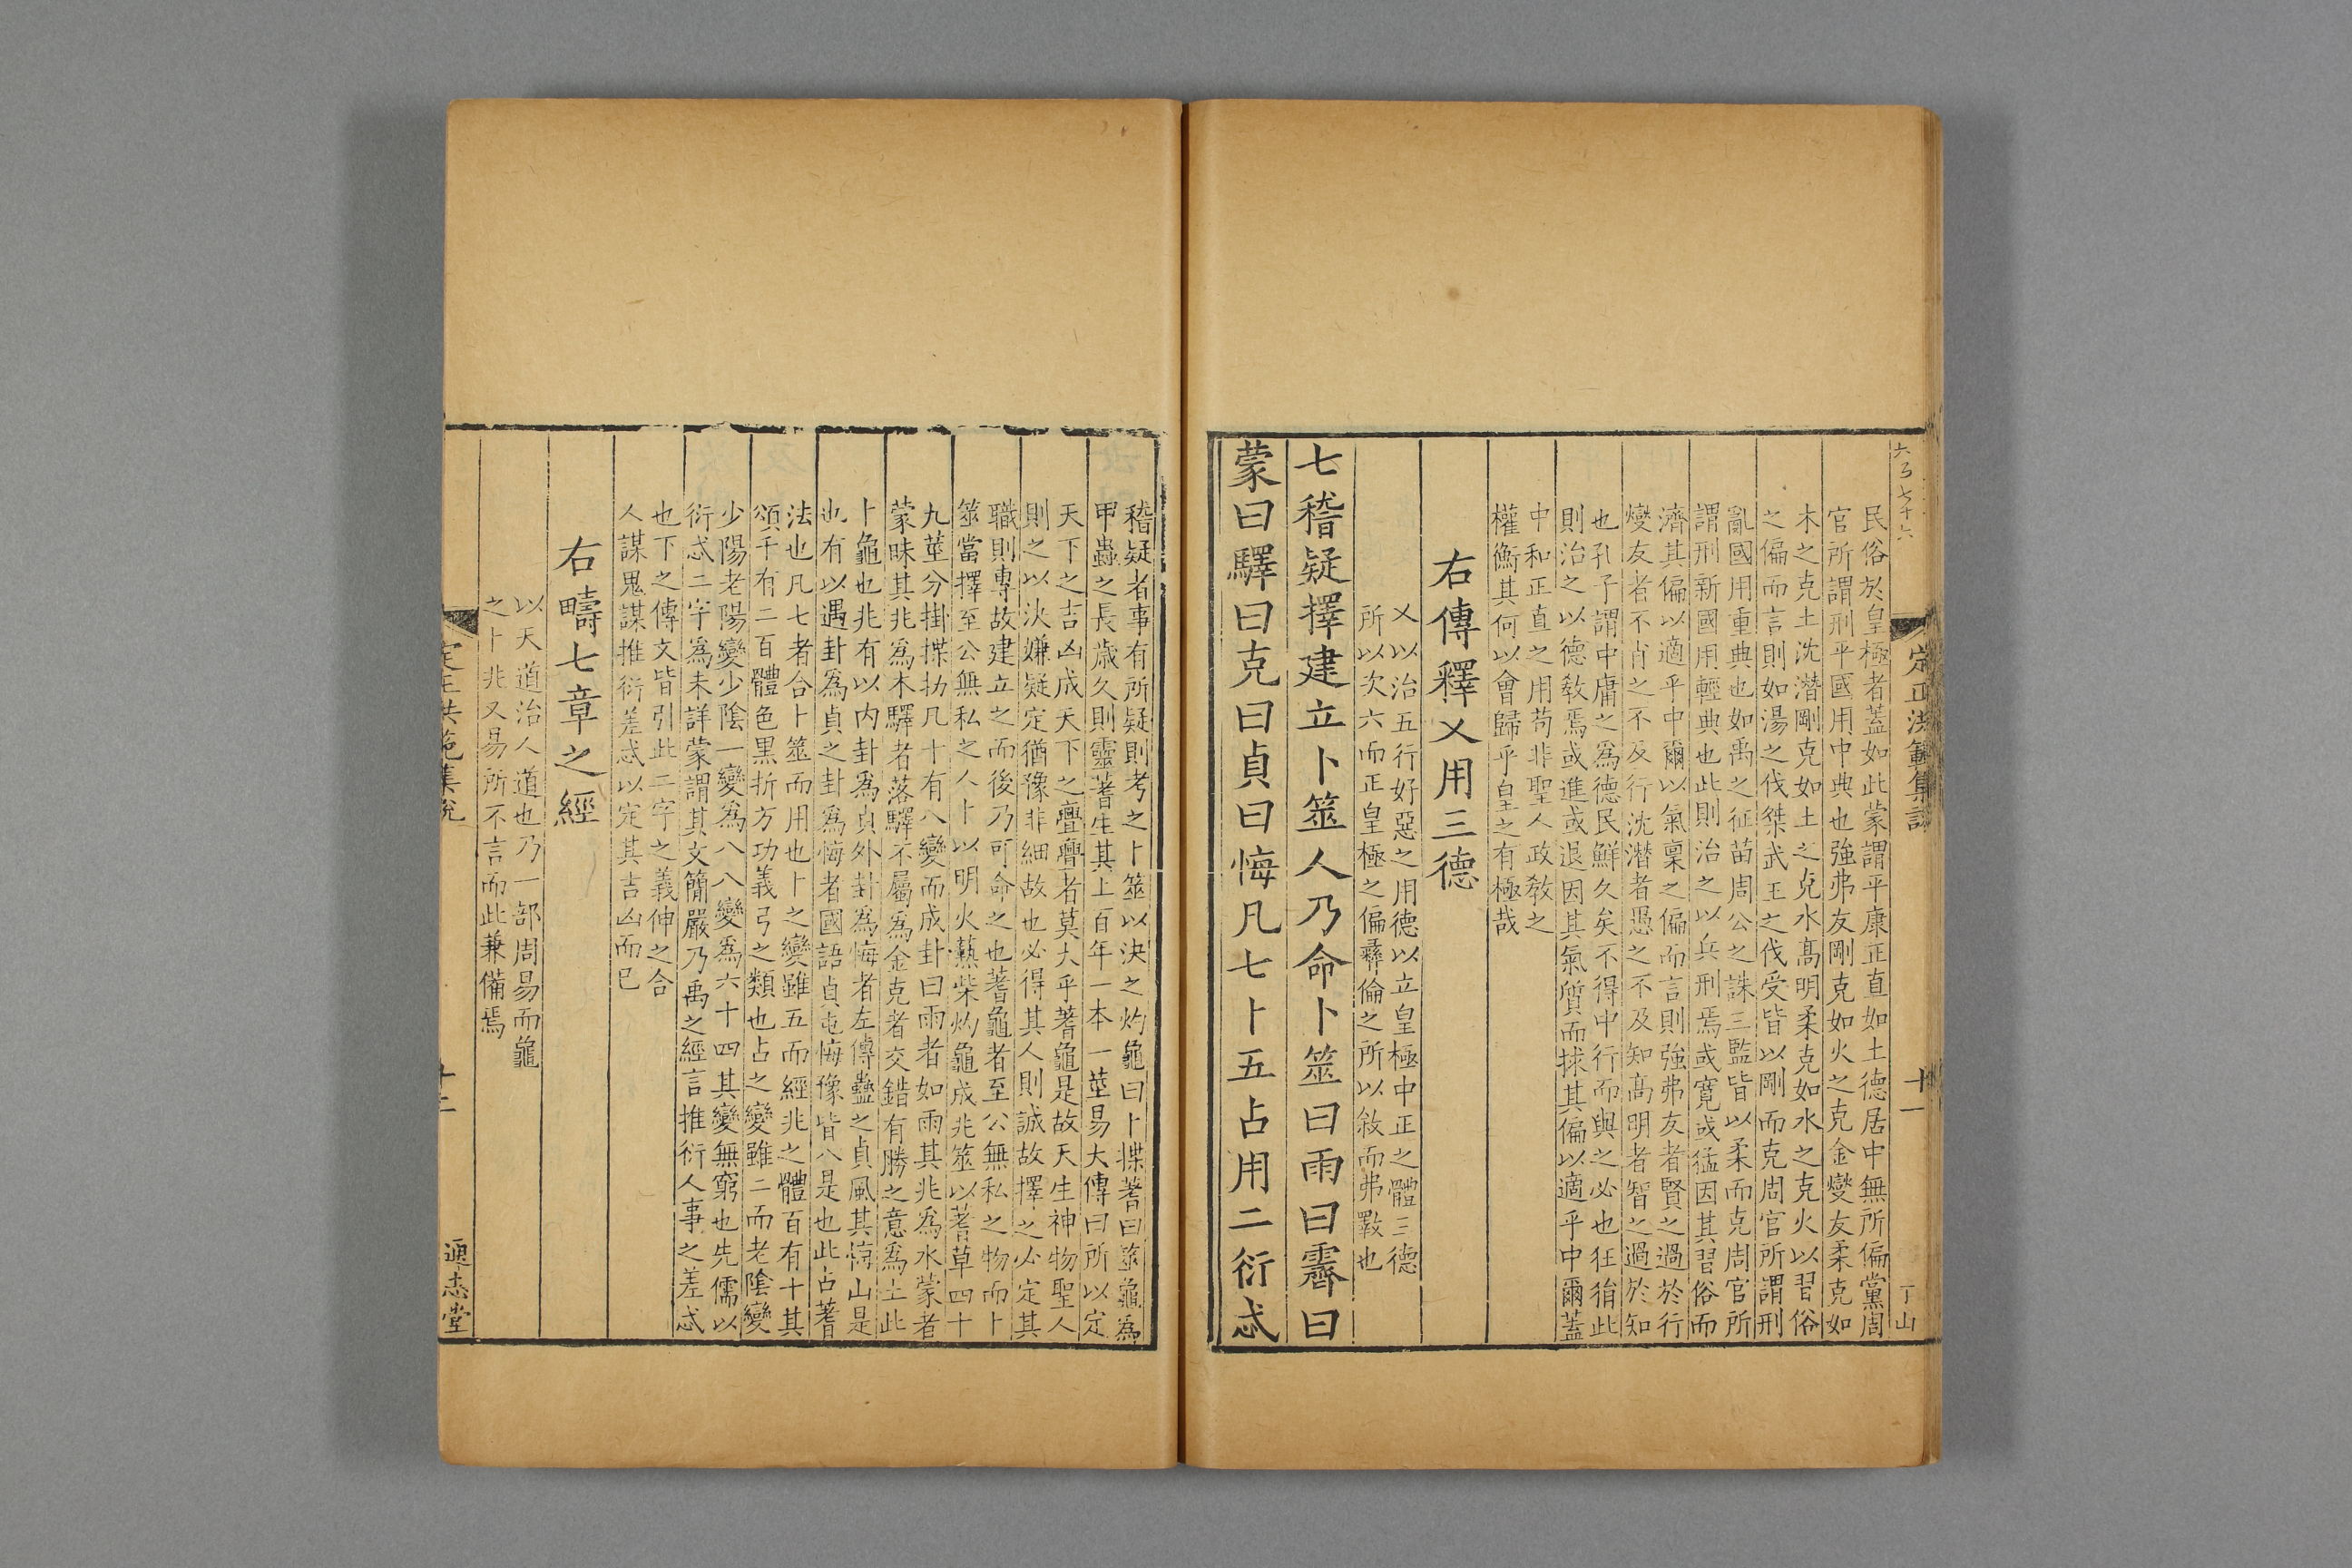 民俗於皇極者蓋如此蒙謂平康正直如土德居中無所偏黨周
官所謂刑平國用中典也強弗友剛克如火之克金燮友柔克如
木之克土沈潛剛克如土之克水高明柔克如水之克火以習俗
之偏而言則如湯之伐桀武王之伐受皆以剛而克周官所謂刑
亂國用重典也如禹之征苗周公之誅三監皆以柔而克周官所
謂刑新國用輕典也此則治之以兵刑焉或寬或猛因其習俗而
濟其偏以適乎中爾以氣稟之偏而言則強弗友者賢之過於行
燮友者不肖之不及行沈潛者愚之不及知高明者智之過於知
也孔子謂中庸之為德民鮮久矣不得中行而與之必也狂狷此
則治之以德教焉或進或退因其氣質而捄其偏以適乎中爾蓋
中和正直之用苟非聖人政教之
權衡其何以會歸乎皇之有極哉
右傳釋乂用三德
乂以治五行好惡之用德以立皇極中正之體三德
所以次六而正皇極之偏彝倫之所以敘而弗斁也
七稽疑擇建立卜筮人乃命卜筮曰雨曰霽曰
蒙曰驛曰克曰貞曰悔凡七卜五占用二衍忒
定正洪範集說
十一
丁山
稽疑者事有所疑則考之卜筮以決之灼龜曰卜揲蓍曰筮龜為
甲蟲之長歲久則靈蓍生其上百年一本一莖易大傳曰所以定
天下之吉凶成天下之亹亹者莫大乎蓍龜是故天生神物聖人
則之以決嫌疑定猶豫非細故也必得其人則誠故擇之必定其
職則專故建立之而後乃可命之也蓍龜者至公無私之物而卜
筮當擇至公無私之人卜以明火爇柴灼龜成兆筮以蓍草四十
九莖分掛揲扐凡十有八變而成卦曰雨者如雨其兆為水蒙者
蒙昧其兆為木驛者落驛不屬為金克者交錯有勝之意為土此
卜龜也兆有以內卦為貞外卦為悔者左傳蠱之貞風其悔山是
也有以遇卦為貞之卦為悔者國語貞屯悔豫皆八是也此占蓍
法也凡七者合卜筮而用也卜之變雖五而經兆之體百有十其
頌千有二百體色黑折方功義弓之類也占之變雖二而老陰變
少陽老陽變少陰一變為八八變為六十四其變無窮也先儒以
衍忒二字為未詳蒙謂其文簡嚴乃禹之經言推衍人事之差忒
也下之傳文皆引此二字之義伸之合
人謀鬼謀推衍差忒以定其吉凶而已
右疇七章之經
以天道治人道也乃一部周易而龜
之卜兆又易所不言而此兼備焉
定正洪範集說
通志堂